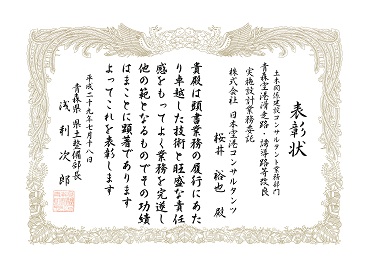 表彰状
土木関係建設コンサルタント業務部門
青森空港滑走路・誘導路等改良
実施設計業務委託
株式会社 日本空港コンサルタンツ
桜井 裕也 殿
貴殿は頭書業務の履行にあた
り卓越した技術と旺盛な責任
感をもってよく業務を完遂し
他の範となるものでその功績
はまことに顕著であります
よってこれを表彰します
平成二十九年七月十八日
青森県 県土整備部長
浅利 次郎